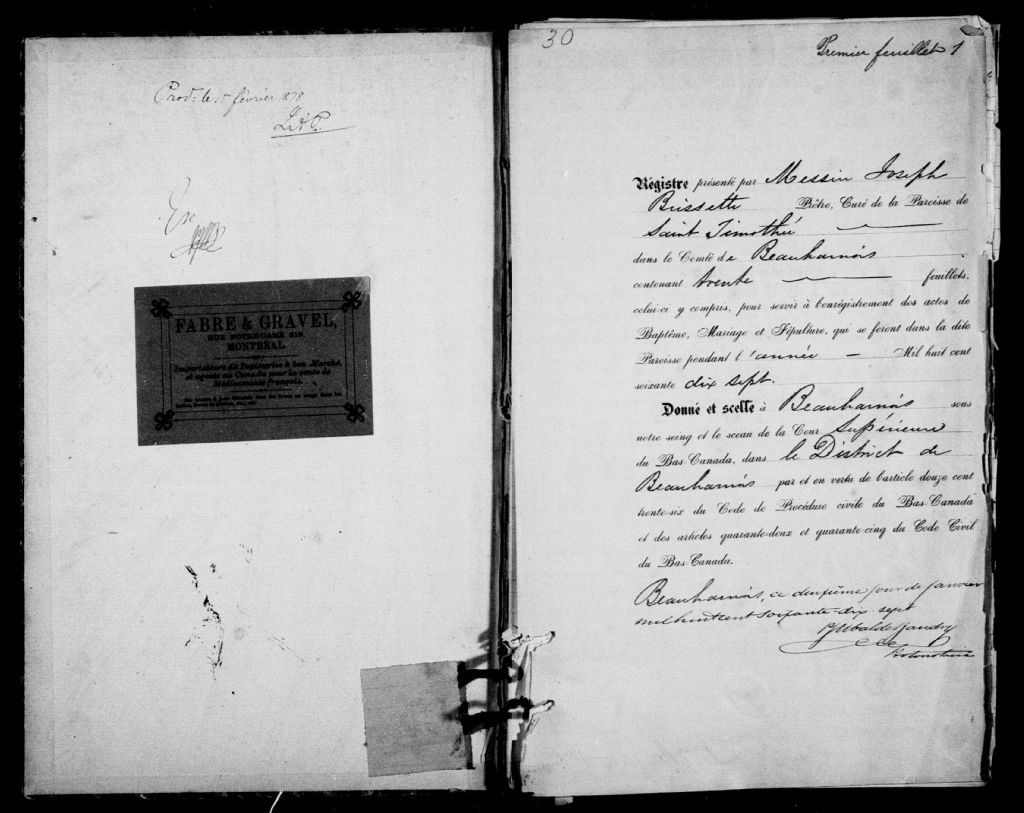 Prod. le 1er février 1878
FABRE & GRAVEL,
RUE NOTRE-DAME 219,
MONTREAL.
Importateurs de Tapisseries à bon Marché,
et agents au Canada pour la vente de
Médicaments français.
30
Premier feuillet 1
Régistre présenté par Messire Joseph
Brissette Prêtre, Curé de la Paroisse de
Saint Timothée
dans le Comté de Beauharnois
contenant trente feuillets,
celui-ci y compris, pour servir à l'enrégistrement des actes de
Baptême, Mariage et Sépulture, qui se feront dans la dite
Paroisse pendant l'année Mil huit cent
soixante dix sept.
Donné et scellé à Beauharnois sous
notre seing et le sceau de la Cour Supérieure
du Bas-Canada, dans le District de
Beauharnois par et en vertu de l'article douze cent
trente-six du Code de Procédure civile du Bas-Canada
et des articles quarante-deux et quarante-cinq du Code Civil
du Bas-Canada.
Beauharnois, ce deuxième jour de janvier
mil huit cent soixante-dix sept
Protonotaire